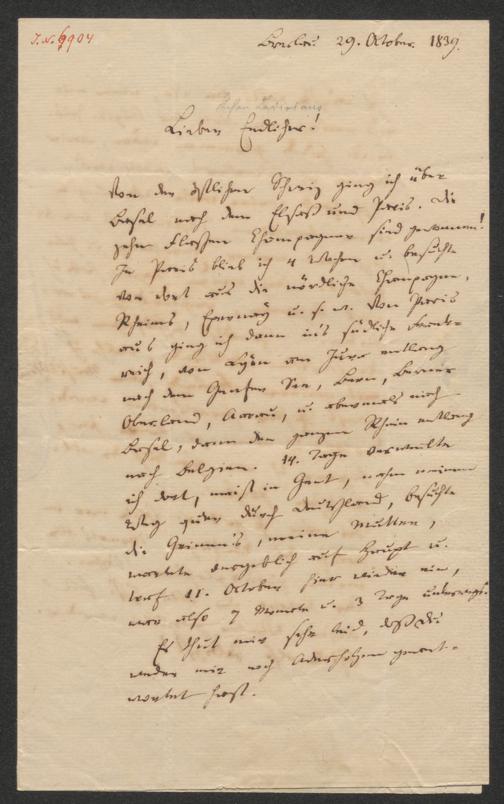 I.N. 6904
Breslau 29. October. 1839.
Lieber Endlicher!
Von der östlichen Schweiz ging ich über
Basel nach dem Elsaß und Paris. Die
zehn Flaschen Champagner sind gewonnen!
In Paris blieb ich 4 Wochen u. besuchte
von dort aus die nördliche Champagne,
Rheims, Epernay u. s. w. Von Paris
aus ging ich dann ins südliche Frank-
reich, von Lyon am Jura entlang
nach dem Genfer See, Bern, Berner
Oberland, Aarau, u. abermals nach
Basel, dann den ganzen Rhein entlang
nach Belgien. 14. Tage verweilte
ich dort, meist in Gent, nahm meinen
Weg quer durch Deutschland, besuchte
die Grimm's, meine Mutter,
wartete vergeblich auf Haupt u.
traf 11. October hier wieder ein,
war also 7 Monate u. 3 Tage unterwegs.
Es thut mir sehr leid, daß Du
weder mir noch geant-
wortet hast.